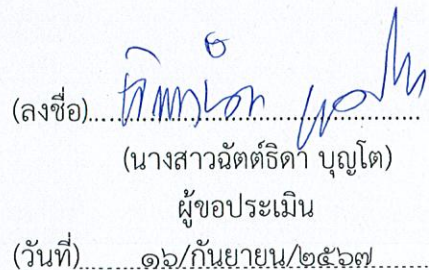 (ลงชื่อ)
(นางสาวฉัตต์ธิดา บุญโต)
ผู้ขอประเมิน
(วันที่) ๑๖/กันยายน/๒๕๖๗